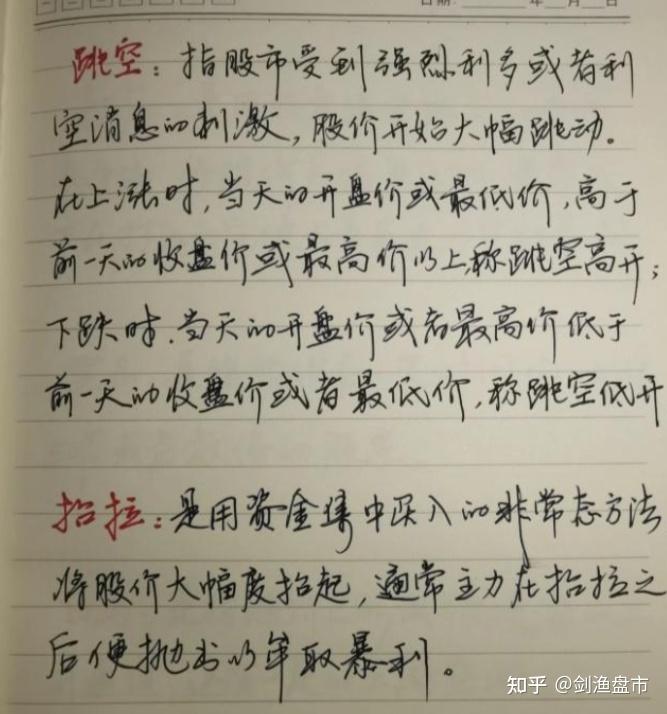 日期: 年 月 日
跳空：指股市受到强烈利多或者利
空消息的刺激，股价开始大幅跳动。
在上涨时，当天的开盘价或最低价，高于
前一天的收盘价或最高价以上，称跳空高开；
下跌时，当天的开盘价或者最高价低于
前一天的收盘价或者最低价，称跳空低开
抬拉：是用资金集中买入的非常态方法
将股价大幅度抬起，通常主力在抬拉之
后便抛出以牟取暴利。
知乎 @剑渔盘市